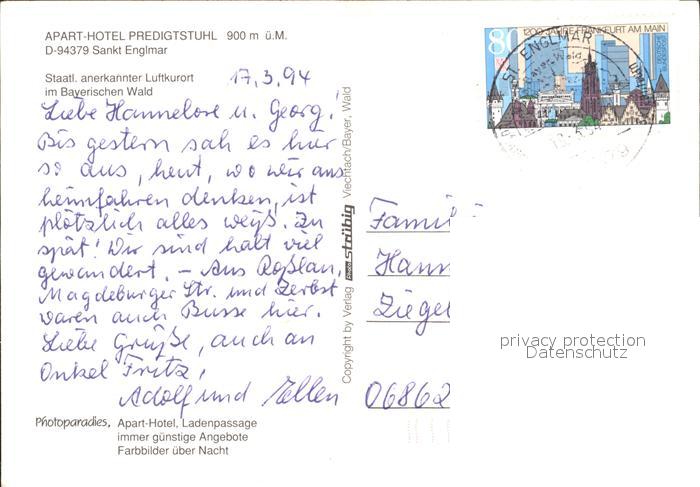 APART-HOTEL PREDIGTSTUHL 900 m ü.M.
D-94379 Sankt Englmar
Staatl. anerkannter Luftkurort
im Bayerischen Wald
17.3.94
Liebe Hannelore u. Georg!
Bis gestern sah es hier
so aus, heut, wo wir ans
heimfahren denken, ist
plötzlich alles weiß. Zu
spät! Wir sind halt viel
gewandert. – Aus Roßlau,
Magdeburger Str. und Zerbst
waren auch Busse hier.
Liebe Grüße, auch an
Onkel Fritz,
Adolf und Ellen
Photoparadies, Apart-Hotel, Ladenpassage
immer günstige Angebote
Farbbilder über Nacht
Copyright by Verlag stäubig Viechtach/Bayer. Wald
80
1200 JAHRE FRANKFURT AM MAIN
ST. ENGLMAR
Famil
Hann
Ziegel
06862
privacy protection
Datenschutz